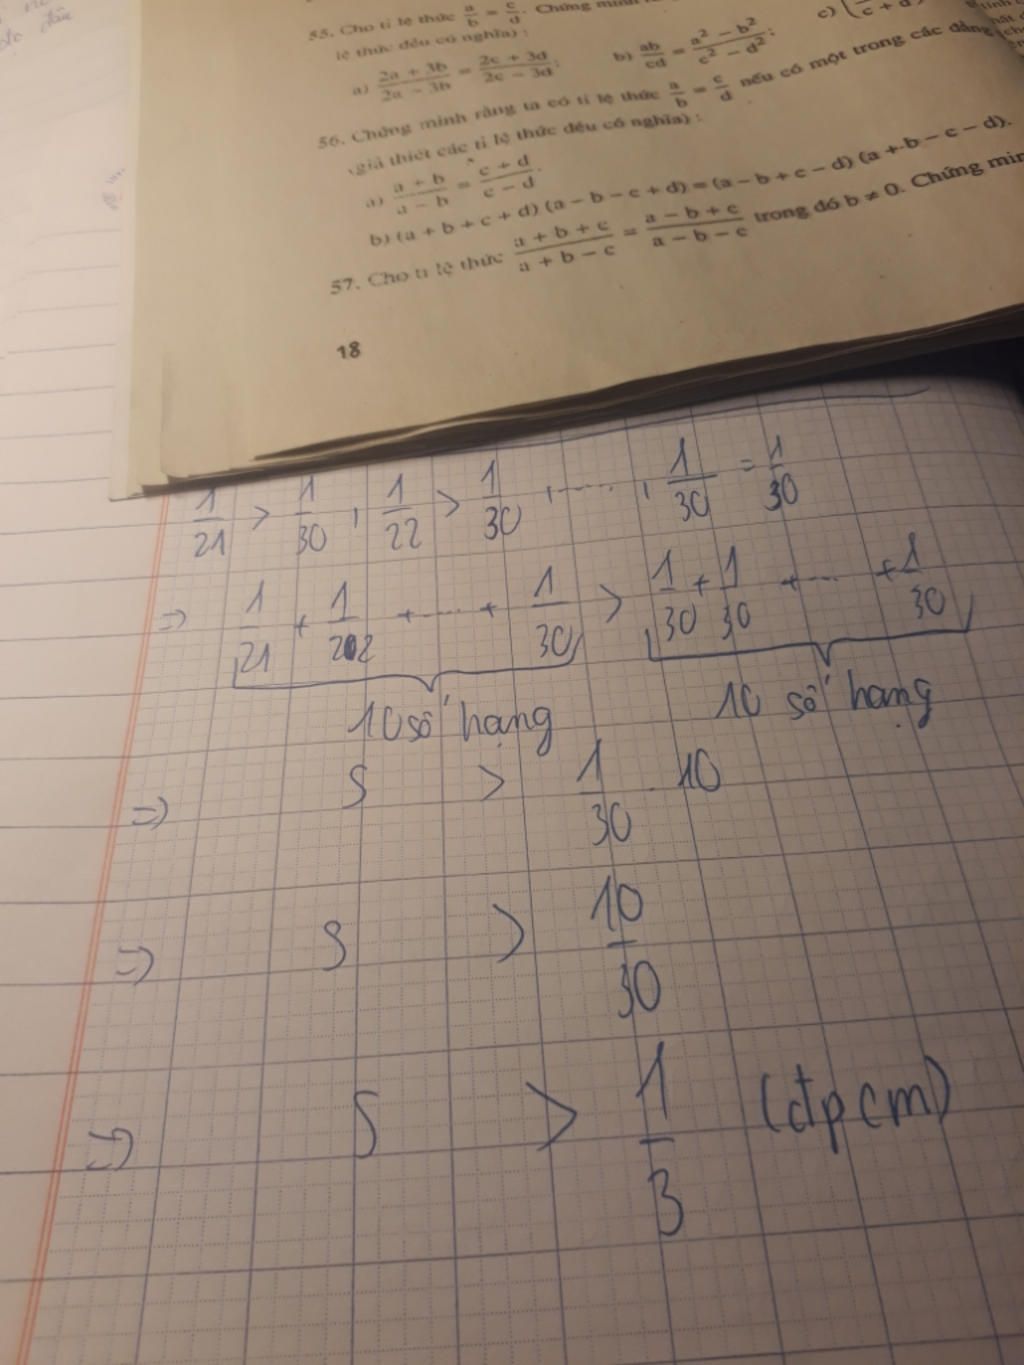 55. Cho tỉ lệ thức a/b = c/d. Chứng minh
lệ thức đều có nghĩa) :
a) (2a + 3b)/(2a − 3b) = (2c + 3d)/(2c − 3d); b) ab/cd = (a² − b²)/(c² − d²); c)
56. Chứng minh rằng ta có tỉ lệ thức a/b = c/d nếu có một trong các đẳng
giả thiết các tỉ lệ thức đều có nghĩa) :
a) (a + b)/(a − b) = (c + d)/(c − d).
b) (a + b + c + d) (a − b − c + d) = (a − b + c − d) (a + b − c − d).
57. Cho tỉ lệ thức (a + b + c)/(a + b − c) = (a − b + c)/(a − b − c) trong đó b ≠ 0. Chứng min
18
1/21 > 1/30 , 1/22 > 1/30 , ..... , 1/30 = 1/30
=> 1/21 + 1/22 + ..... + 1/30 > 1/30 + 1/30 + ... + 1/30
10 số hạng 10 số hạng
=> S > 1/30 . 10
=> S > 10/30
=> S > 1/3 (đpcm)